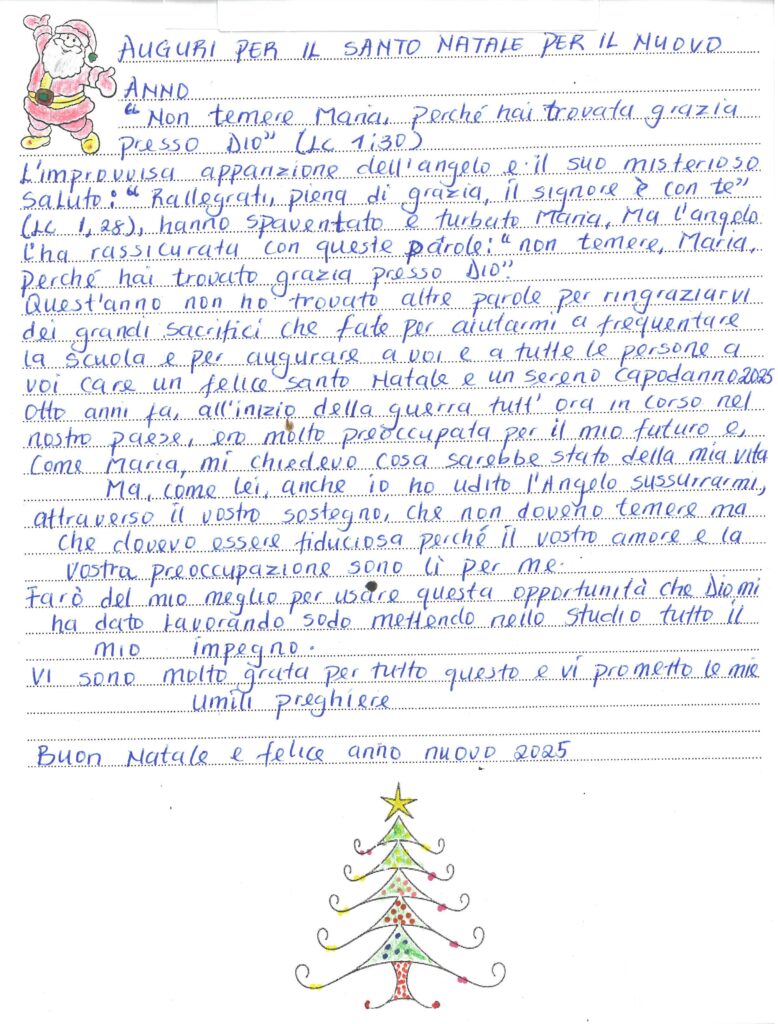 AUGURI PER IL SANTO NATALE PER IL NUOVO
ANNO
"Non temere Maria, perché hai trovata grazia
presso DIO" (Lc 1;30)
L'improvvisa apparizione dell'angelo e il suo misterioso
saluto: "Rallegrati, piena di grazia, il signore è con te"
(Lc 1,28), hanno spaventato e turbato Maria, Ma l'angelo
l'ha rassicurata con queste parole: "non temere, Maria,
perché hai trovato grazia presso Dio".
Quest'anno non ho trovato altre parole per ringraziarvi
dei grandi sacrifici che fate per aiutarmi a frequentare
la scuola e per augurare a voi e a tutte le persone a
voi care un felice santo Natale e un sereno capodanno 2025
Otto anni fa, all'inizio della guerra tutt'ora in corso nel
nostro paese, ero molto preoccupata per il mio futuro e,
Come Maria, mi chiedevo cosa sarebbe stato della mia vita
Ma, come lei, anche io ho udito l'Angelo sussurrarmi,
attraverso il vostro sostegno, che non dovevo temere ma
che dovevo essere fiduciosa perché il vostro amore e la
vostra preoccupazione sono lì per me.
Farò del mio meglio per usare questa opportunità che Dio mi
ha dato lavorando sodo mettendo nello studio tutto il
mio impegno.
Vi sono molto grata per tutto questo e vi prometto le mie
umili preghiere
Buon Natale e felice anno nuovo 2025